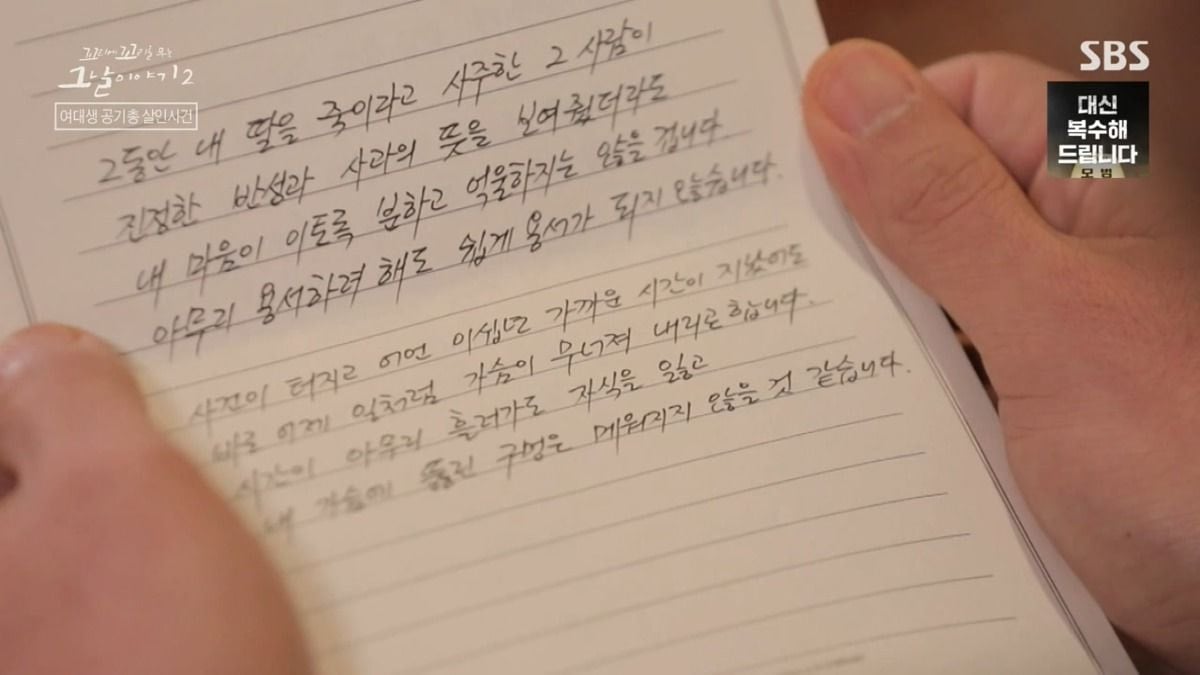 꼬리에 꼬리를 무는
그날 이야기 2
여대생 공기총 살인사건
SBS
대신
복수해
드립니다
모범
그동안 내 딸을 죽이라고 사주한 그 사람이
진정한 반성과 사과의 뜻을 보여줬더라도
내 마음이 이토록 분하고 억울하지는 않을 겁니다
아무리 용서하려 해도 쉽게 용서가 되지 않습니다.
사건이 터지고 어언 이십년 가까운 시간이 지났어도
바로 어제 일처럼 가슴이 무너져 내리곤 합니다.
시간이 아무리 흘러가도 자식을 잃고
내 가슴에 뚫린 구멍은 메워지지 않을 것 같습니다.